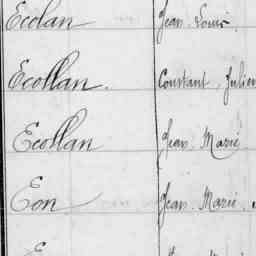 Ecolan Jean Louis
Ecollan. Constant, Julien
Ecollan Jean Marie
Eon Jean Marie